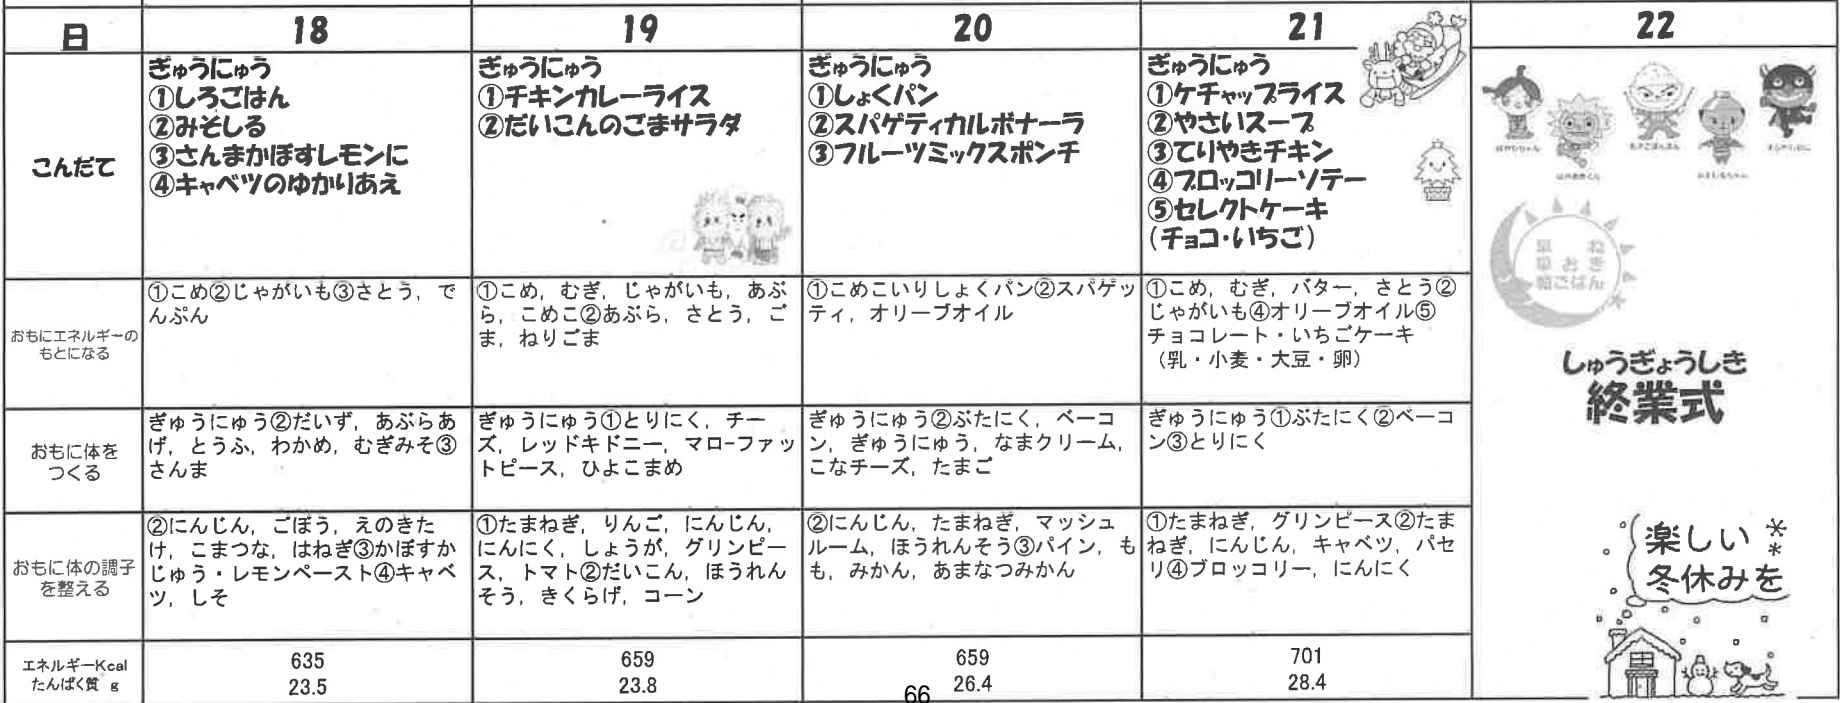 日
18
19
20
21
22
こんだて
ぎゅうにゅう
①しろごはん
②みそしる
③さんまかぼすレモンに
④キャベツのゆかりあえ
ぎゅうにゅう
①チキンカレーライス
②だいこんのごまサラダ
ぎゅうにゅう
①しょくパン
②スパゲティカルボナーラ
③フルーツミックスポンチ
ぎゅうにゅう
①ケチャップライス
②やさいスープ
③てりやきチキン
④ブロッコリーソテー
⑤セレクトケーキ
(チョコ・いちご)
おもにエネルギーの
もとになる
①こめ②じゃがいも③さとう, で
んぷん
①こめ, むぎ, じゃがいも, あぶ
ら, こめこ②あぶら, さとう, ご
ま, ねりごま
①こめこいりしょくパン②スパゲッ
ティ, オリーブオイル
①こめ, むぎ, バター, さとう②
じゃがいも④オリーブオイル⑤
チョコレート・いちごケーキ
(乳・小麦・大豆・卵)
おもに体を
つくる
ぎゅうにゅう②だいず, あぶらあ
げ, とうふ, わかめ, むぎみそ③
さんま
ぎゅうにゅう①とりにく, チー
ズ, レッドキドニー, マローファッ
トピース, ひよこまめ
ぎゅうにゅう②ぶたにく, ベーコ
ン, ぎゅうにゅう, なまクリーム,
こなチーズ, たまご
ぎゅうにゅう①ぶたにく②ベーコ
ン③とりにく
おもに体の調子
を整える
②にんじん, ごぼう, えのきた
け, こまつな, はねぎ③かぼすか
じゅう・レモンペースト④キャベ
ツ, しそ
①たまねぎ, りんご, にんじん,
にんにく, しょうが, グリンピー
ス, トマト②だいこん, ほうれん
そう, きくらげ, コーン
②にんじん, たまねぎ, マッシュ
ルーム, ほうれんそう③パイン, も
も, みかん, あまなつみかん
①たまねぎ, グリンピース②たま
ねぎ, にんじん, キャベツ, パセ
リ④ブロッコリー, にんにく
エネルギーKcal
たんぱく質 g
635
23.5
659
23.8
659
26.4
701
28.4
早ね
早おき
朝ごはん
しゅうぎょうしき
終業式
楽しい
冬休みを
66